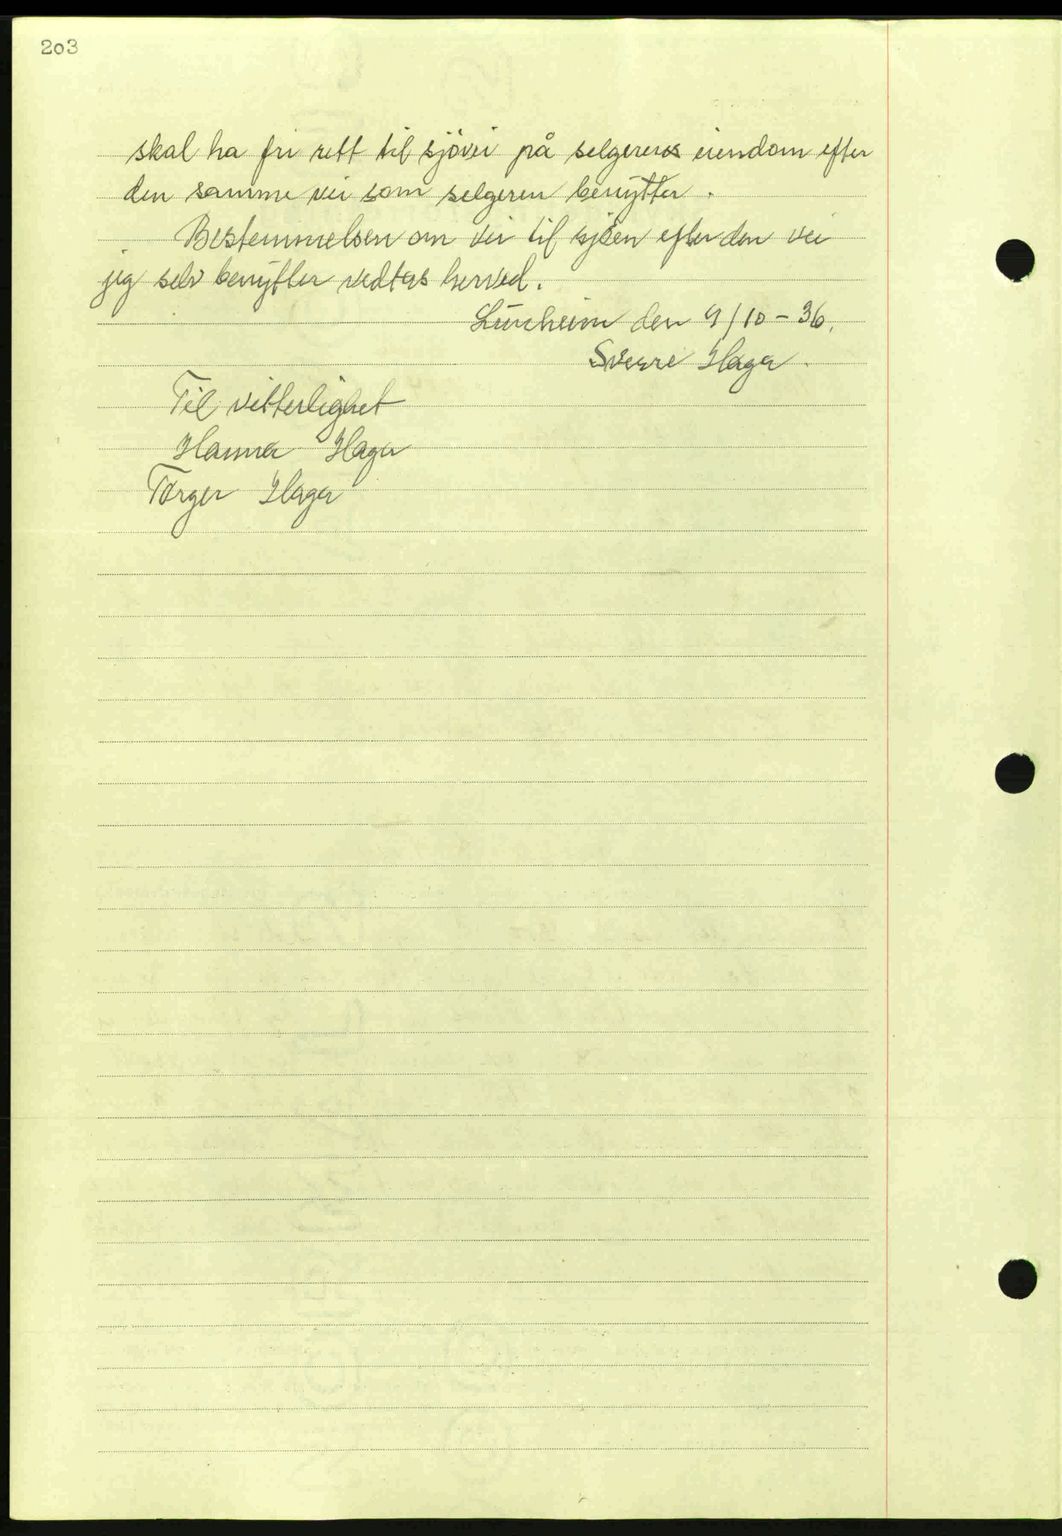 203
skal ha fri rett til sjövei på selgerens eiendom efter
den samme vei som selgeren benytter.
Bestemmelsen om vei til sjöen efter den vei
jeg selv benytter vedtas herved.
den 9/10-36.
Sverre Haga.
Til vitterlighet
Hanna Haga
Torger Haga